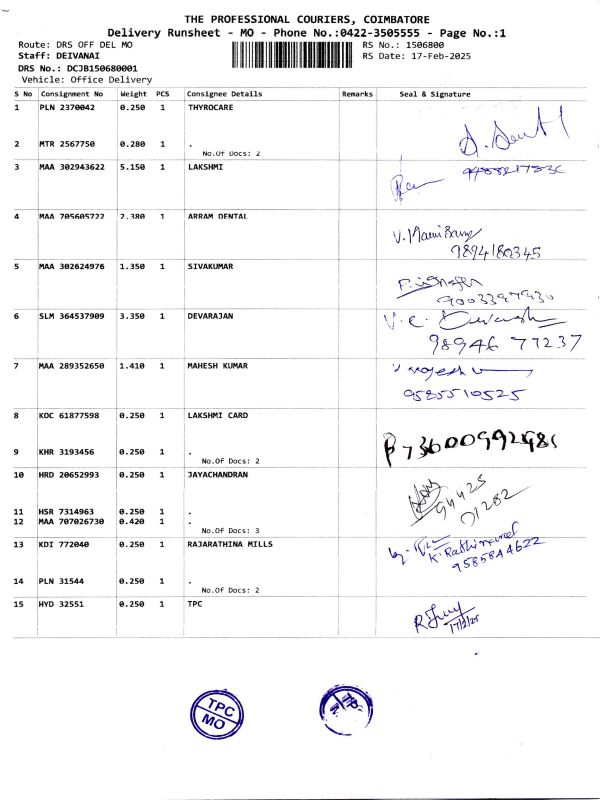 THE PROFESSIONAL COURIERS, COIMBATORE
Delivery Runsheet - MO - Phone No.:0422-3505555 - Page No.:1
Route: DRS OFF DEL MO RS No.: 1506800
Staff: DEIVANAI RS Date: 17-Feb-2025
DRS No.: DCJB150680001
Vehicle: Office Delivery
S No Consignment No Weight PCS Consignee Details Remarks Seal & Signature
1 PLN 2370042 0.250 1 THYROCARE
2 MTR 2567750 0.280 1 .
No.Of Docs: 2
3 MAA 302943622 5.150 1 LAKSHMI
4 MAA 705605722 2.380 1 ARRAM DENTAL
9894180345
5 MAA 302624976 1.350 1 SIVAKUMAR
6 SLM 364537909 3.350 1 DEVARAJAN V. C.
98946 77237
7 MAA 289352650 1.410 1 MAHESH KUMAR
9585510525
8 KOC 61877598 0.250 1 LAKSHMI CARD
9 KHR 3193456 0.250 1 .
No.Of Docs: 2
10 HRD 20652993 0.250 1 JAYACHANDRAN
94425
01282
11 HSR 7314963 0.250 1 .
12 MAA 707026730 0.420 1 .
No.Of Docs: 3
13 KDI 772040 0.250 1 RAJARATHINA MILLS
9585844622
14 PLN 31544 0.250 1 .
No.Of Docs: 2
15 HYD 32551 0.250 1 TPC
17/2/25
TPC
MO
TPC